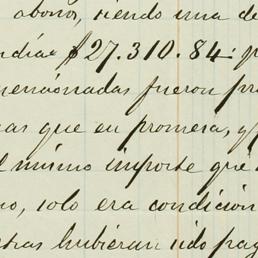 abono, siendo una de
$27.310.84.
mencionadas fueron pr
as que en promera, y
l mismo importe que
o, solo era condición
tras hubiéran sido pag